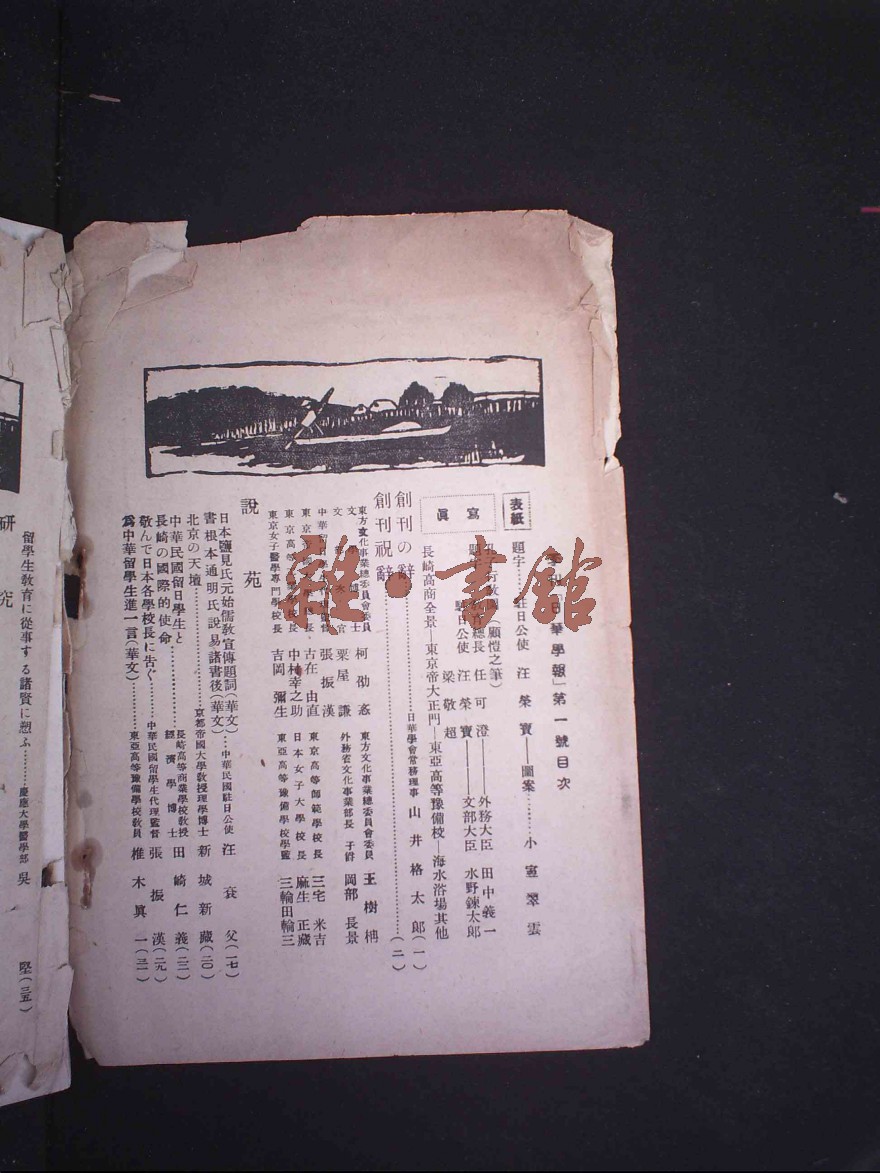 「季刊日華學報」第一號目次
表紙
題字……駐日公使 汪榮寶――圖案………小室翠雲
寫眞
孔子行教圖(顧愷之筆)――外務大臣 田中義一
題字 教育總長 任可澄――文部大臣 水野鍊太郎
駐日公使 汪榮寶
梁敬超
長崎高商全景―東京帝大正門―東亞高等豫備校―海水浴場其他
創刊の辭………日華學會常務理事 山井格太郎(一)
創刊祝辭………(二)
東方文化事業總委員會委員 文學博士 柯劭忞 東方文化事業總委員會委員 王樹枏
文 官 粟屋謙 外務省文化事業部長 子爵 岡部長景
中華留日 監督 張振漢 東京高等師範學校長 三宅米吉
東京帝 學 長 古在由直 日本女子大學校長 麻生正藏
東京高等 學校長 中村幸之助 東亞高等豫備學校學監 三輪田輪三
東京女子醫學專門學校長 吉岡彌生
說苑
日本鹽見氏元始儒教宣傳題詞(華文)…中華民國駐日公使 汪袞父(一七)
書根本通明氏說易諸書後(華文)
北京の天壇………京都帝國大學教授理學博士 新城新藏(二〇)
中華民國留日學生と
長崎の國際的使命………長崎高等商業學校教授 經濟學博士 田崎仁義(二三)
敬んで日本各學校長に吿ぐ………中華民國留學生代理監督 張振漢(二九)
爲中華留學生進一言(華文)………東亞高等豫備學校教員 椎木眞一(三一)
研究
留學生敎育に從事する諸賢に愬ふ………慶應大學醫學部 吳 堅(三五)
雜·書館